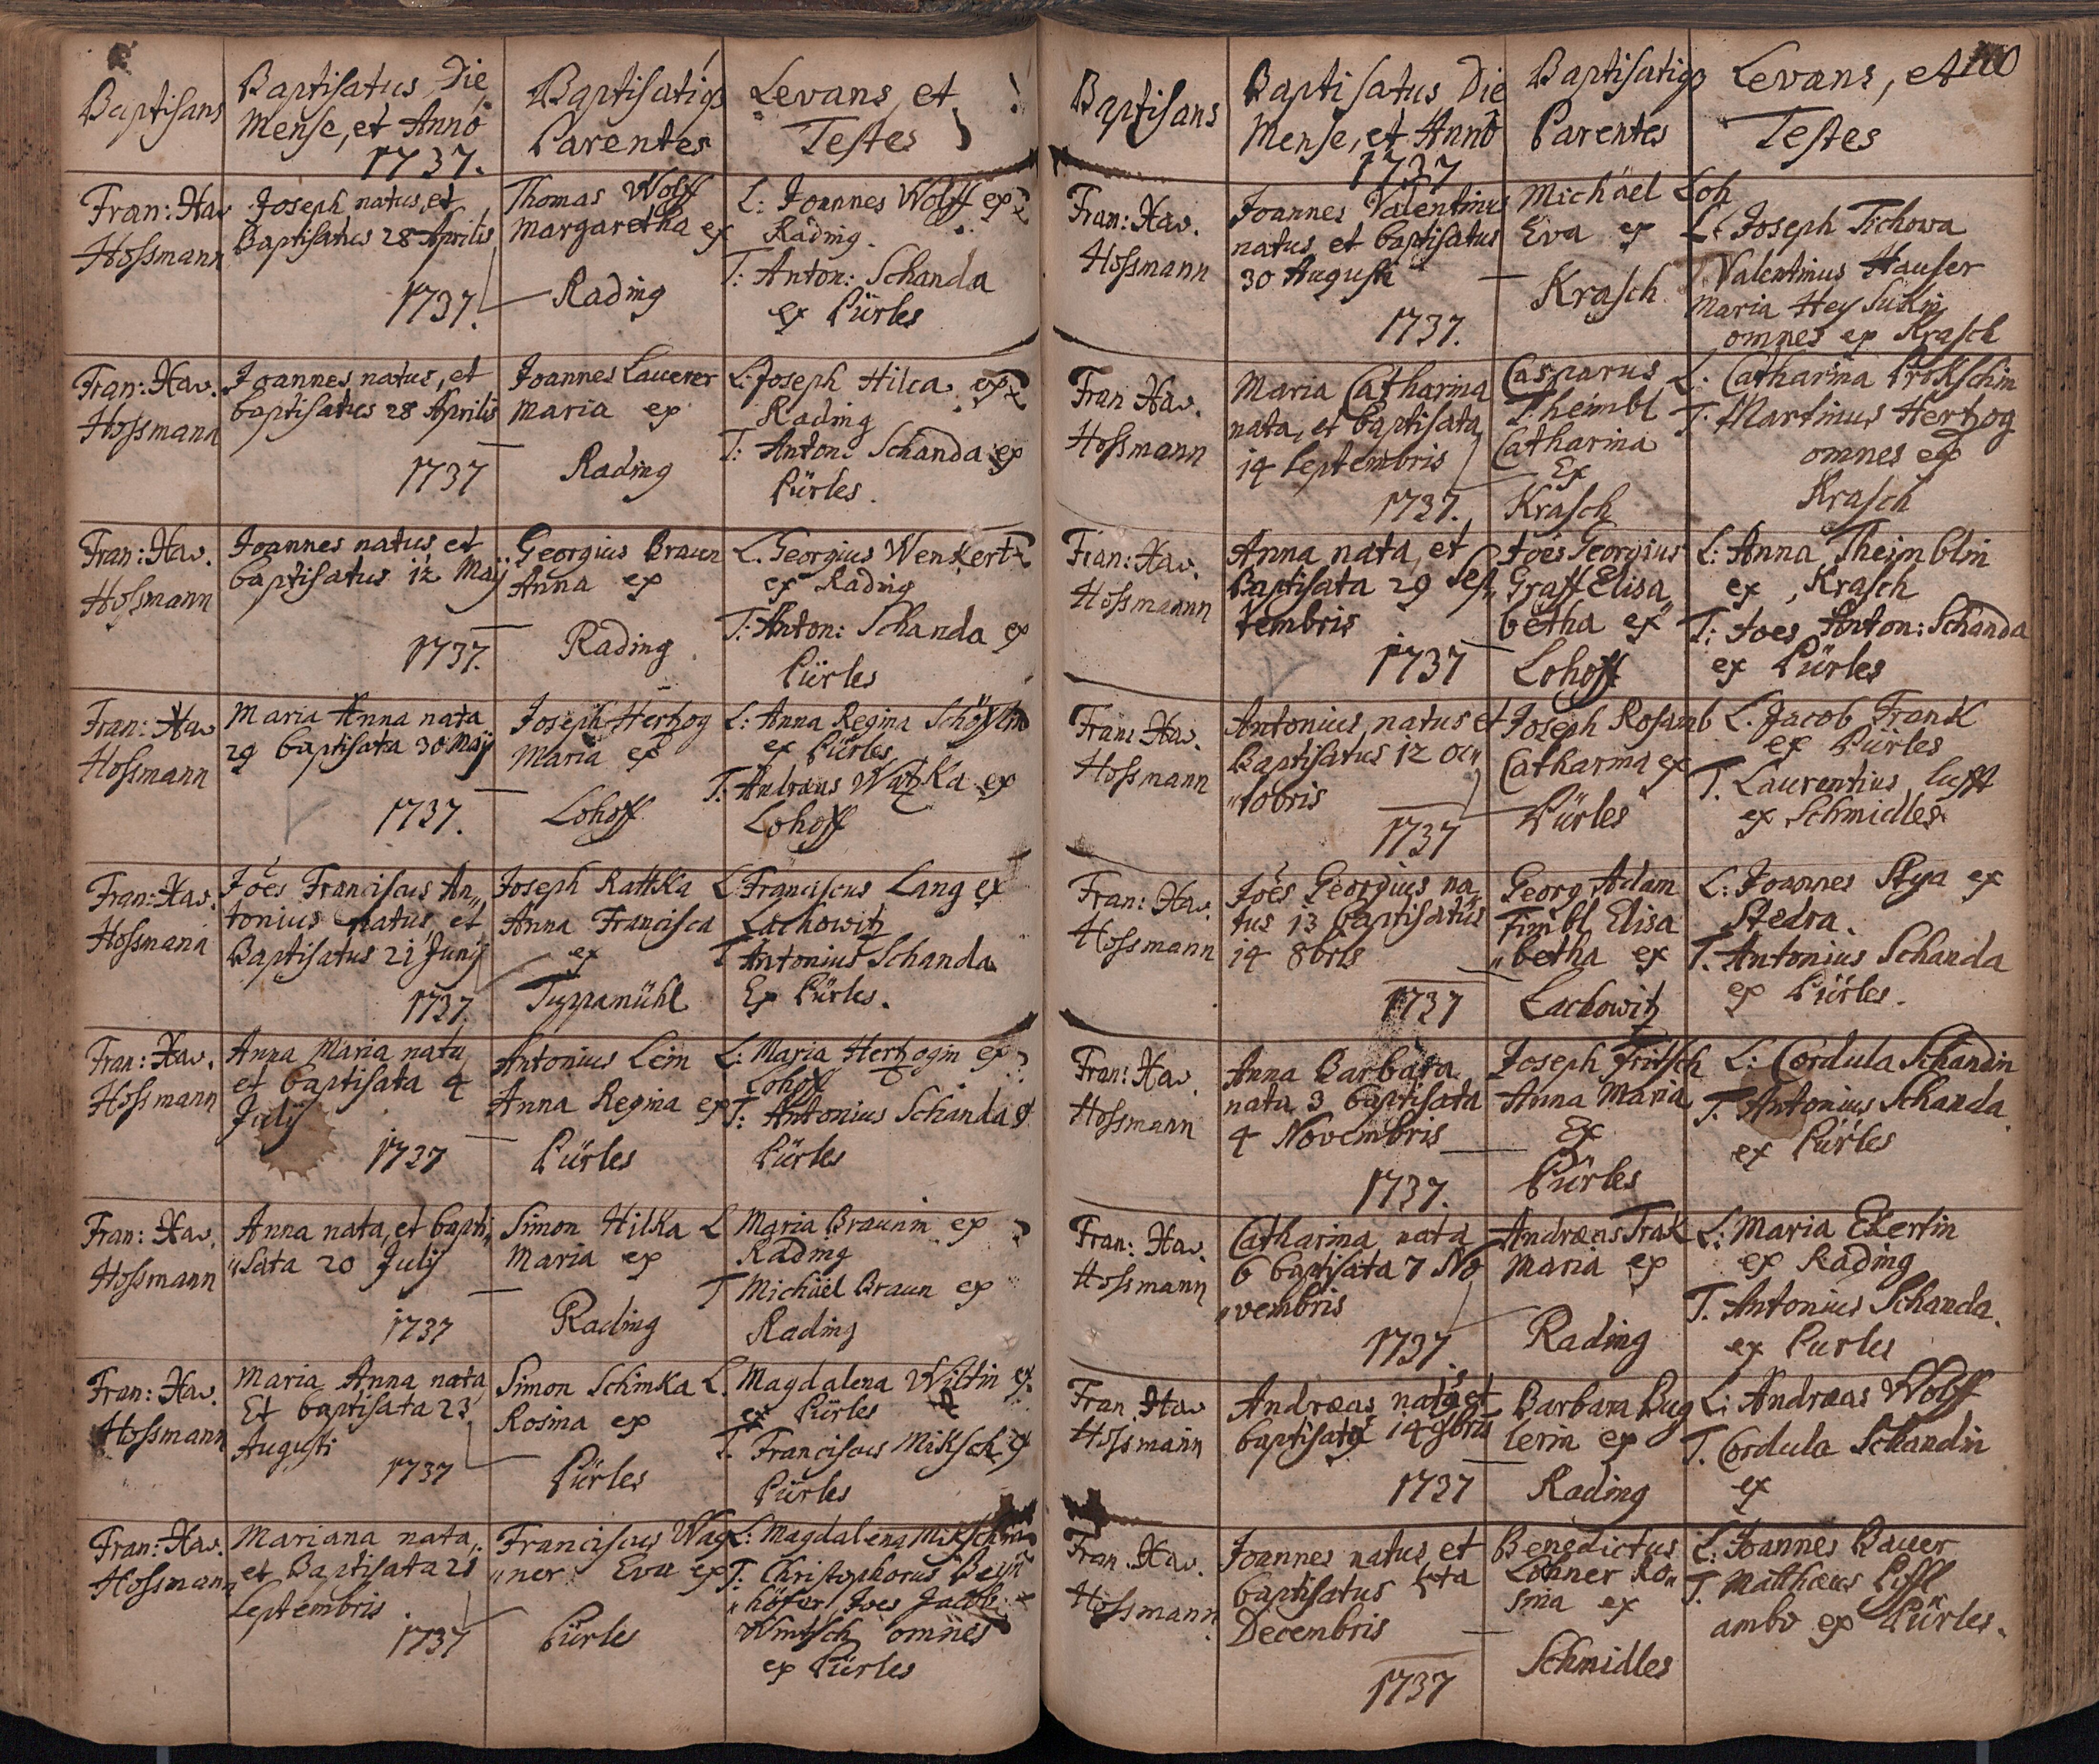 Baptisans
Baptisatus Die
Mense, et Anno
1737.
Baptisatis
Parentes
Levans, et
Testes
Fran: Xav
Hossmann
Joseph natus, et
Baptisatus 28 Aprilis
1737.
Thomas Wolff
Margaretha ex
Rading
L: Joannes Wolff ex
Rading.
T: Anton: Schanda
ex Pürles
Fran: Xav.
Hossmann
Joannes natus, et
baptisatus 28 Aprilis
1737
Joannes Lauerer
Maria ex
Rading
L: Joseph Hilca ex
Rading
T: Anton: Schanda ex
Pürles.
Fran: Xav.
Hossmann
Joannes natus, et
baptisatus 12 Maij
1737.
Georgius Braun
Anna ex
Rading
L. Georgius Wenkert
ex Rading
T: Anton: Schanda ex
Pürles
Fran: Xav
Hossmann
Maria Anna nata
29 baptisata 30 Maij
1737.
Joseph Hertzog
Maria ex
Lohoff
L: Anna Regina
ex Pürles
T: Andreas Watzka ex
Lohoff
Fran: Xav.
Hossmann
Joes Franciscus An„
tonius natus, et
Baptisatus 21 Junij
1737.
Joseph Rattka
Anna Francisca
ex
Tuppamühl
L: Franciscus Lang ex
Lachowitz
T Antonius Schanda
Ex Pürles.
Fran: Xav.
Hossmann
Anna Maria nata
et baptisata 4
Julij
1737
Antonius Leim
Anna Regina ex
Pürles
L: Maria Hertzogin ex
Lohoff
T: Antonius Schanda ex
Pürles
Fran: Xav.
Hossmann
Anna nata, et bapti„
„sata 20 Julij
1737
Simon Hilka
Maria ex
Rading
L Maria Braunin ex
Rading
T Michäel Braun ex
Rading
Fran: Xav.
Hossmann
Maria Anna nata
Et baptisata 23
Augusti
1737
Simon Schinka
Rosina ex
Pürles
L. Magdalena Wiltin ex
ex Pürles
T. Franciscus Miksch ex
Pürles
Fran: Xav.
Hossmann
Mariana nata,
et Baptisata 21
Septembris.
1737
Franciscus Wag
„ner Eva ex
Pürles
L: Magdalena Mikschin
T: Christophorus
„höfer Joes Jacob
omnes
ex Pürles
Baptisans
Baptisatus Die
Mense, et Anno
1737
Baptisatis
Parentes
Levans, et
Testes
Fran: Xav.
Hossmann
Joannes Valentinus
natus et baptisatus
30 Augusti
1737.
Michäel Loh
Eva ex
Krasch
L: Joseph Tichowa
Valentinus Hauser
Maria
omnes ex Krasch
Fran Xav.
Hossmann
Maria Catharina
nata, et baptisata
14 Septembris
1737.
Casparus
Theimbl
Catharina
Ex
Krasch
L: Catharina Prokschin
T. Martinus Hertzog
omnes ex
Krasch
Fran: Xav.
Hossmann
Anna nata, et
Baptisata 29 Sep„
tembris
1737
Joes Georgius
Graff Elisa„
betha ex
Lohoff
L: Anna Theimblin
ex Krasch
T: Joes Anton: Schanda
ex Pürles
Fran: Xav.
Hossmann
Antonius natus et
Baptisatus 12 oc„
„tobris
1737
Joseph Rosamb
Catharina ex
Pürles
L. Jacob Frank
ex Pürles
T. Laurentius Lufft
ex Schmidles
Fran: Xav.
Hossmann
Joes Georgius na„
tus 13 baptisatus
14 8bris
1737
Georg Adam
Fimbl Elisa
„betha ex
Lachowitz
L: Joannes Stya ex
Stedra.
T. Antonius Schanda
ex Pürles.
Fran: Xav.
Hossmann
Anna Barbara
nata 3 baptisata
4 Novembris
1737.
Joseph Fritsch
Anna Maria
Ex
Pürles
L: Cordula Schandin
T. Antonius Schanda
ex Pürles
Fran: Xav.
Hossmann
Catharina nata
6 baptisata 7 No
„vembris
1737
Andreas Trak
Maria ex
Rading
L: Maria Ekertin
ex Rading
T. Antonius Schanda.
ex Purles
Fran Xav
Hossmann
Andreas natus et
baptisatus 14 9bris
1737
Barbara Bug
lerin ex
Rading
L: Andreas Wolff
T. Cordula Schandin
ex
Fran. Xav.
Hossmann
Joannes natus, et
baptisatus 1ma
Decembris
1737
Benedictus
Lohner Ro„
sina ex
Schmidles
L: Joannes Bauer
T. Matthaeus Liffl
ambo ex Pürles.